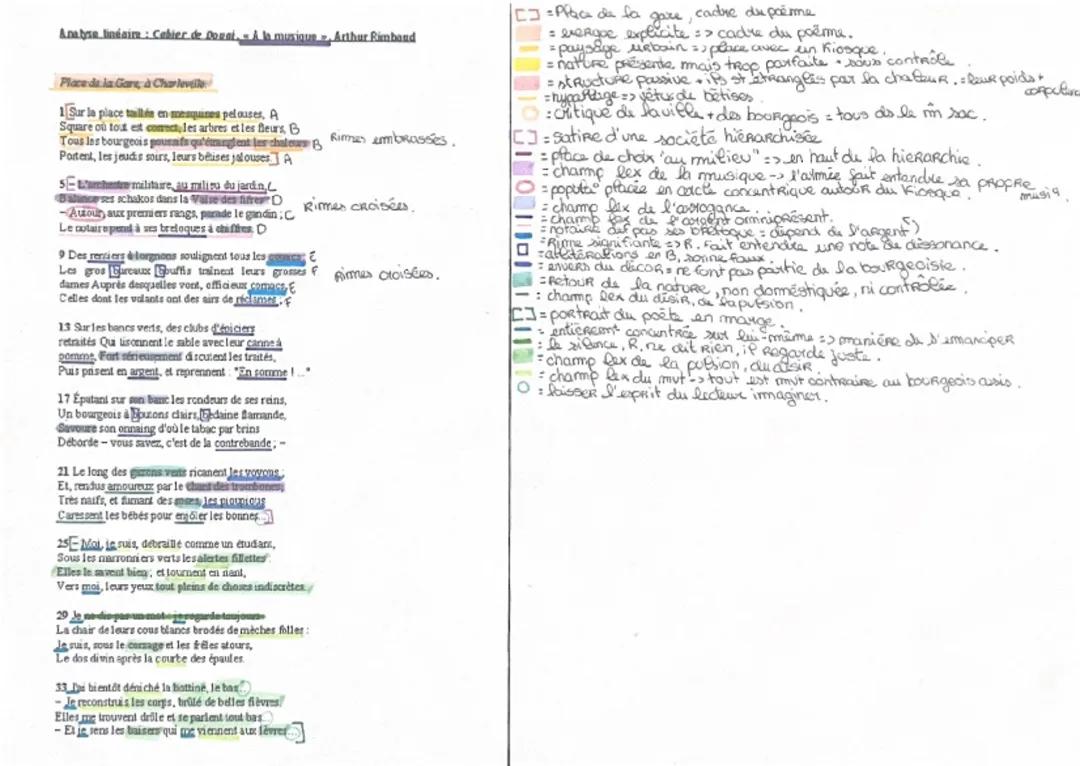 Analyse linéaire : Cahier de Douai, « A la musique », Arthur Rimbaud
Place de la Gare, à Charleville.
1 Sur la place taillée en mesquines pelouses, A
Square où tout est correct, les arbres et les fleurs, B
Tous les bourgeois poussifs qu'étranglent les chaleurs B
Portent, les jeudis soirs, leurs bêtises jalouses. A
Rimes embrassées.
5 – L'orchestre militaire, au milieu du jardin, C
Balance ses schakos dans la Valse des fifres D
– Autour, aux premiers rangs, parade le gandin ; C
Le notaire pend à ses breloques à chiffres. D
Rimes croisées.
9 Des rentiers à lorgnons soulignent tous les couacs : E
Les gros bureaux bouffis traînent leurs grosses F
dames Auprès desquelles vont, officieux cornacs, E
Celles dont les volants ont des airs de réclames ; F
Rimes croisées.
13 Sur les bancs verts, des clubs d'épiciers
retraités Qui tisonnent le sable avec leur canne à
pomme, Fort sérieusement discutent les traités,
Puis prisent en argent, et reprennent : "En somme !..."
17 Épatant sur son banc les rondeurs de ses reins,
Un bourgeois à boutons clairs, bedaine flamande,
Savoure son onnaing d'où le tabac par brins
Déborde – vous savez, c'est de la contrebande ; –
21 Le long des gazons verts ricanent les voyous ;
Et, rendus amoureux par le chant des trombones,
Très naïfs, et fumant des roses, les pioupious
Caressent les bébés pour enjôler les bonnes...
25 – Moi, je suis, débraillé comme un étudiant,
Sous les marronniers verts les alertes fillettes :
Elles le savent bien ; et tournent en riant,
Vers moi, leurs yeux tout pleins de choses indiscrètes.
29 Je ne dis pas un mot : je regarde toujours
La chair de leurs cous blancs brodés de mèches folles :
Je suis, sous le corsage et les frêles atours,
Le dos divin après la courbe des épaules.
33 J'ai bientôt déniché la bottine, le bas...
– Je reconstruis les corps, brûlé de belles fièvres.
Elles me trouvent drôle et se parlent tout bas...
– Et je sens les baisers qui me viennent aux lèvres...
[ ] = Place de la gare, cadre du poème
= exergue explicite => cadre du poème.
= paysage urbain => place avec un kiosque.
= nature présente mais trop parfaite + sous contrôle
= structure passive + ils st étranglés par la chaleur, = leur poids + corpulence
= hypallage => vêtus de bêtises
: critique de la ville + des bourgeois = tous ds le m̂ sac.
[ ] = Satire d'une société hiérarchisée
= place de choix "au milieu" => en haut de la hiérarchie.
= champ lex de la musique -> l'armée fait entendre sa propre musiq
= popult° placée en cercle concentrique autour du kiosque.
= champ lex de l'arrogance.
= champ lex de l'argent omniprésent.
= notaire ses breloque = dépend de l'argent
= Rime signifiante => R. fait entendre une note de dissonance.
= allitérations en B, sonne faux.
= envers du décor = ne font pas partie de la bourgeoisie.
= Retour de la nature, non domestiquée, ni contrôlée.
: champ lex du désir, de la pulsion.
[ ] = portrait du poète en marge.
= entièremt concentrée sur lui-même => manière de s'émanciper
: le silence, R. ne dit rien, il regarde juste.
= champ lex de la pulsion, du désir.
= champ lex du mvt -> tout est mvt contraire au bourgeois assis.
: laisser l'esprit du lecteur immaginer.